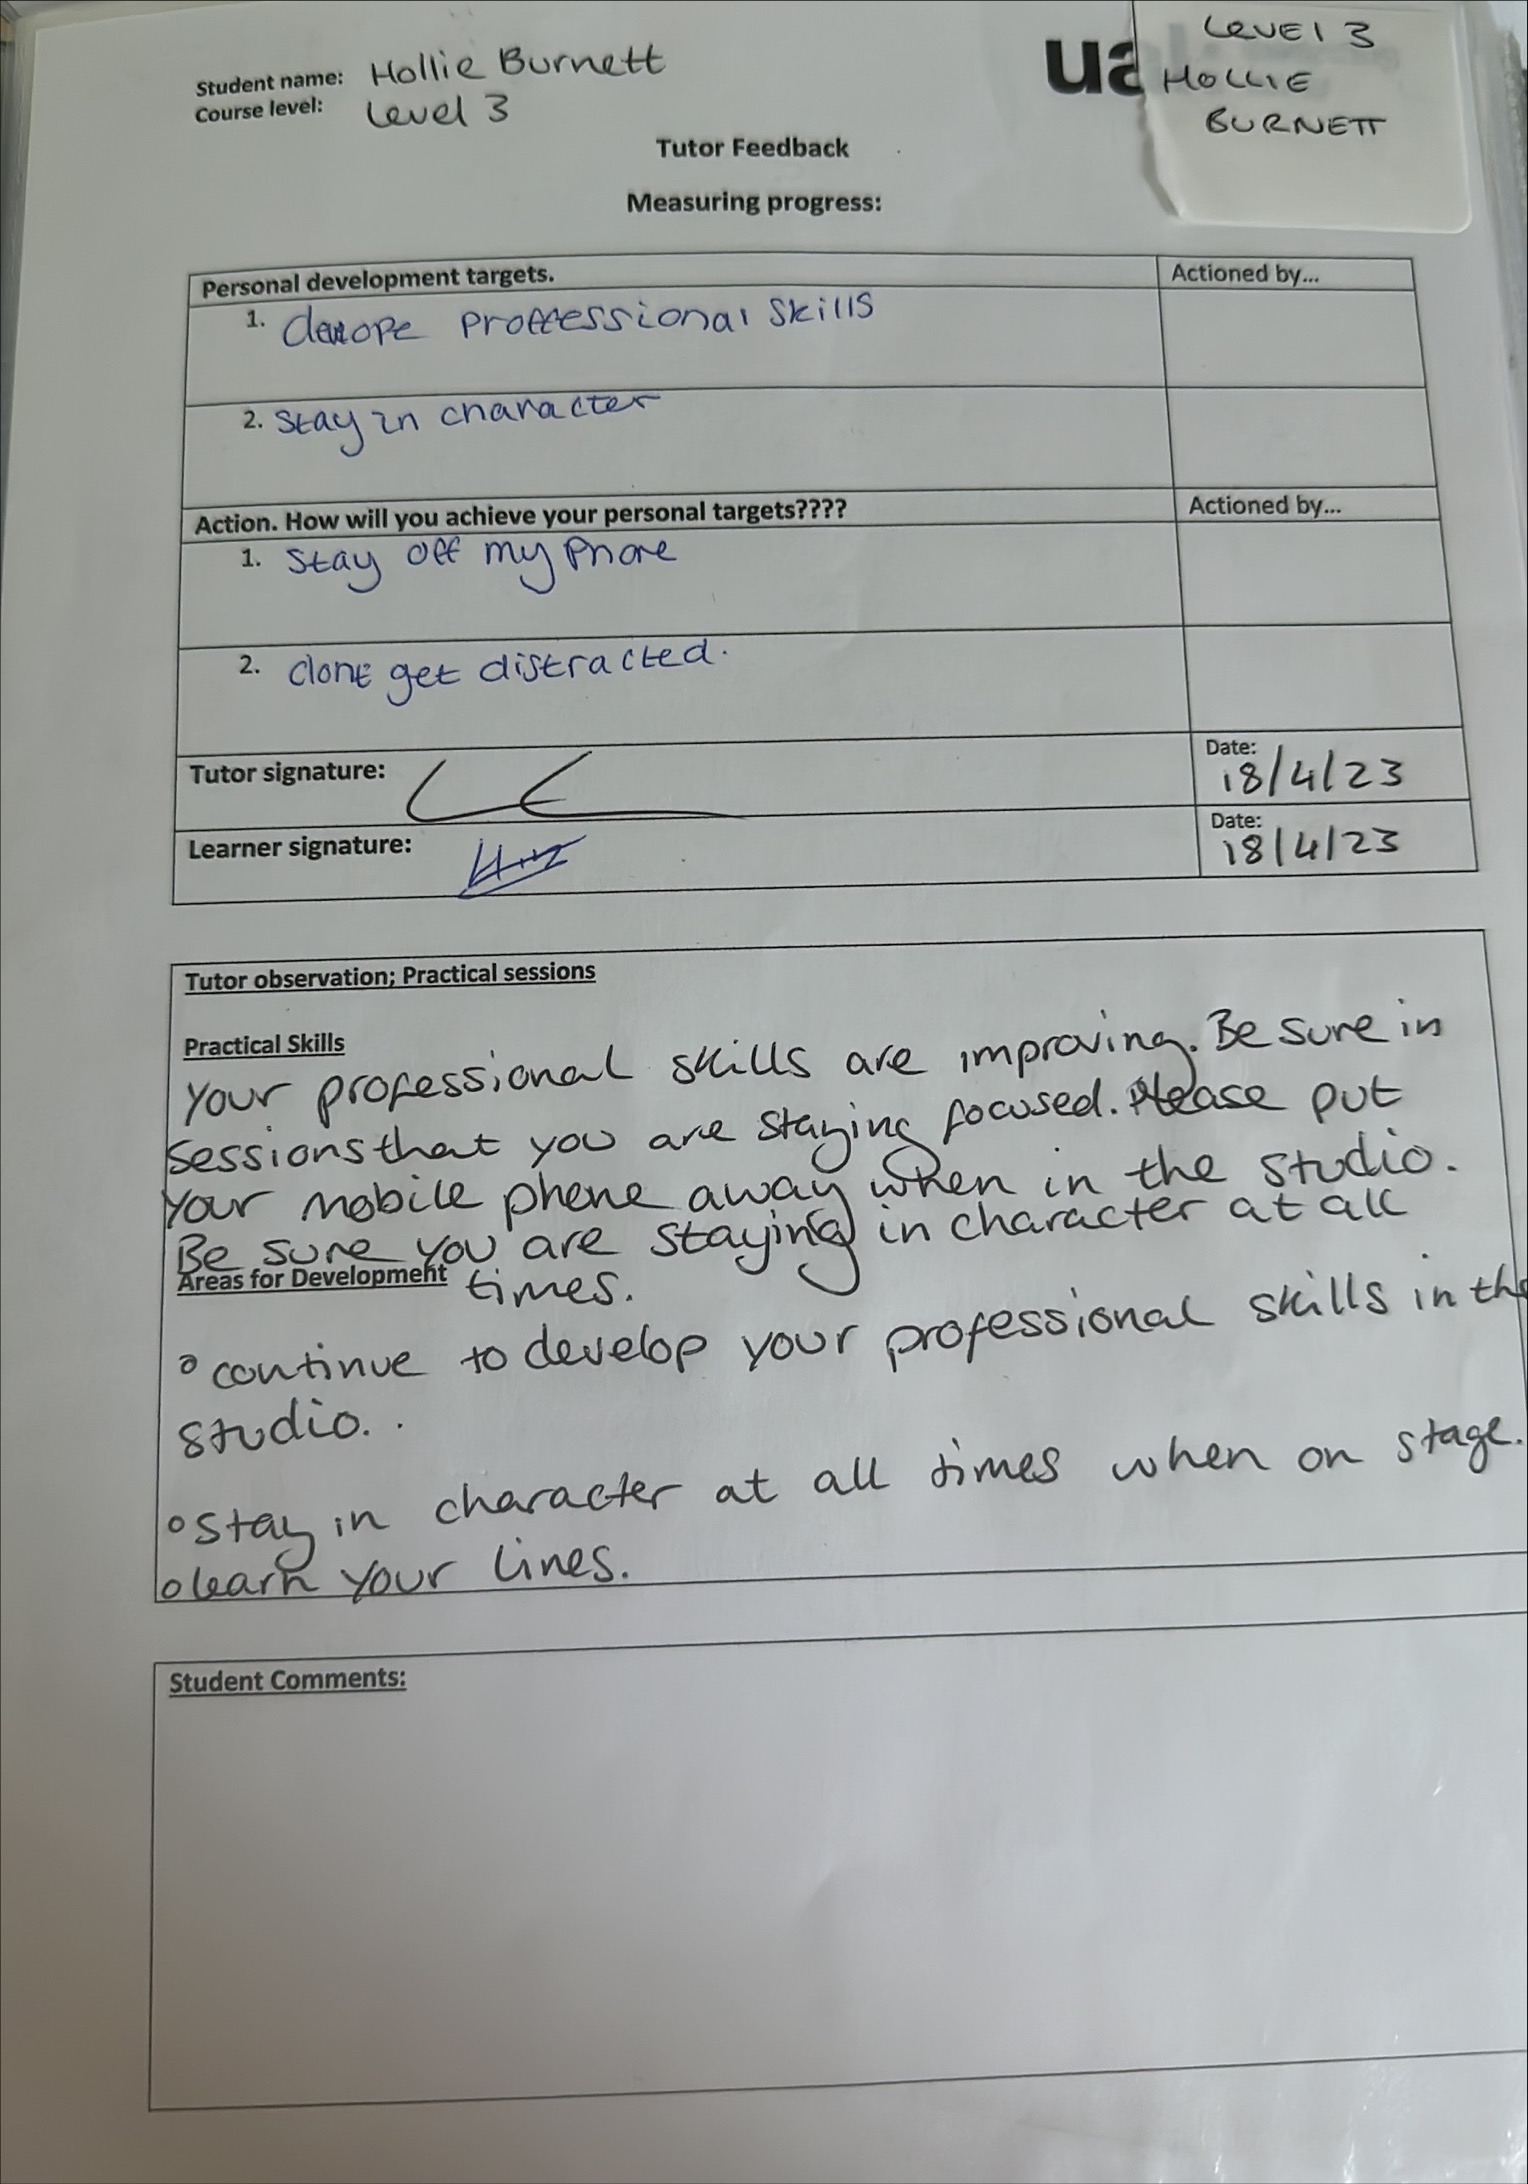 Student name: Hollie Burnett
Course level: Level 3
ua
LEVEL 3
HOLLIE
BURNETT
Tutor Feedback
Measuring progress:
Personal development targets. Actioned by...
1. proffessional skills
2. stay in character
Action. How will you achieve your personal targets???? Actioned by...
1. stay off my phone
2. dont get distracted.
Tutor signature: Date: 18/4/23
Learner signature: Date: 18/4/23
Tutor observation; Practical sessions
Practical Skills
Your professional skills are improving. Be sure in
sessions that you are staying focused. Please put
your mobile phone away when in the studio.
Be sure you are staying in character at all
times.
Areas for Development
° continue to develop your professional skills in the
studio. .
° stay in character at all times when on stage.
° learn your lines.
Student Comments: